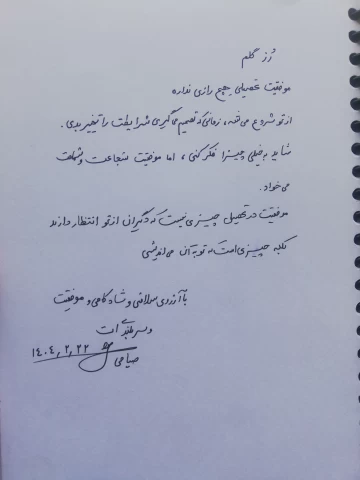 رُز گلم
موفقیت تحصیلی هیچ رازی نداره
از تو شروع می شه، زمانی که تصمیم می گیری شرایطت را تغییر بدی.
شاید به خیلی چیزا فکر کنی، اما موفقیت شجاعت و شهامت
می خواد.
موفقیت در تحصیل چیزی نیست که دیگران از تو انتظار دارند
بلکه چیزی است که تو به آن می اندیشی
با آرزوی سلامتی و شادکامی و موفقیت
۱۴۰۴،۲،۲۲